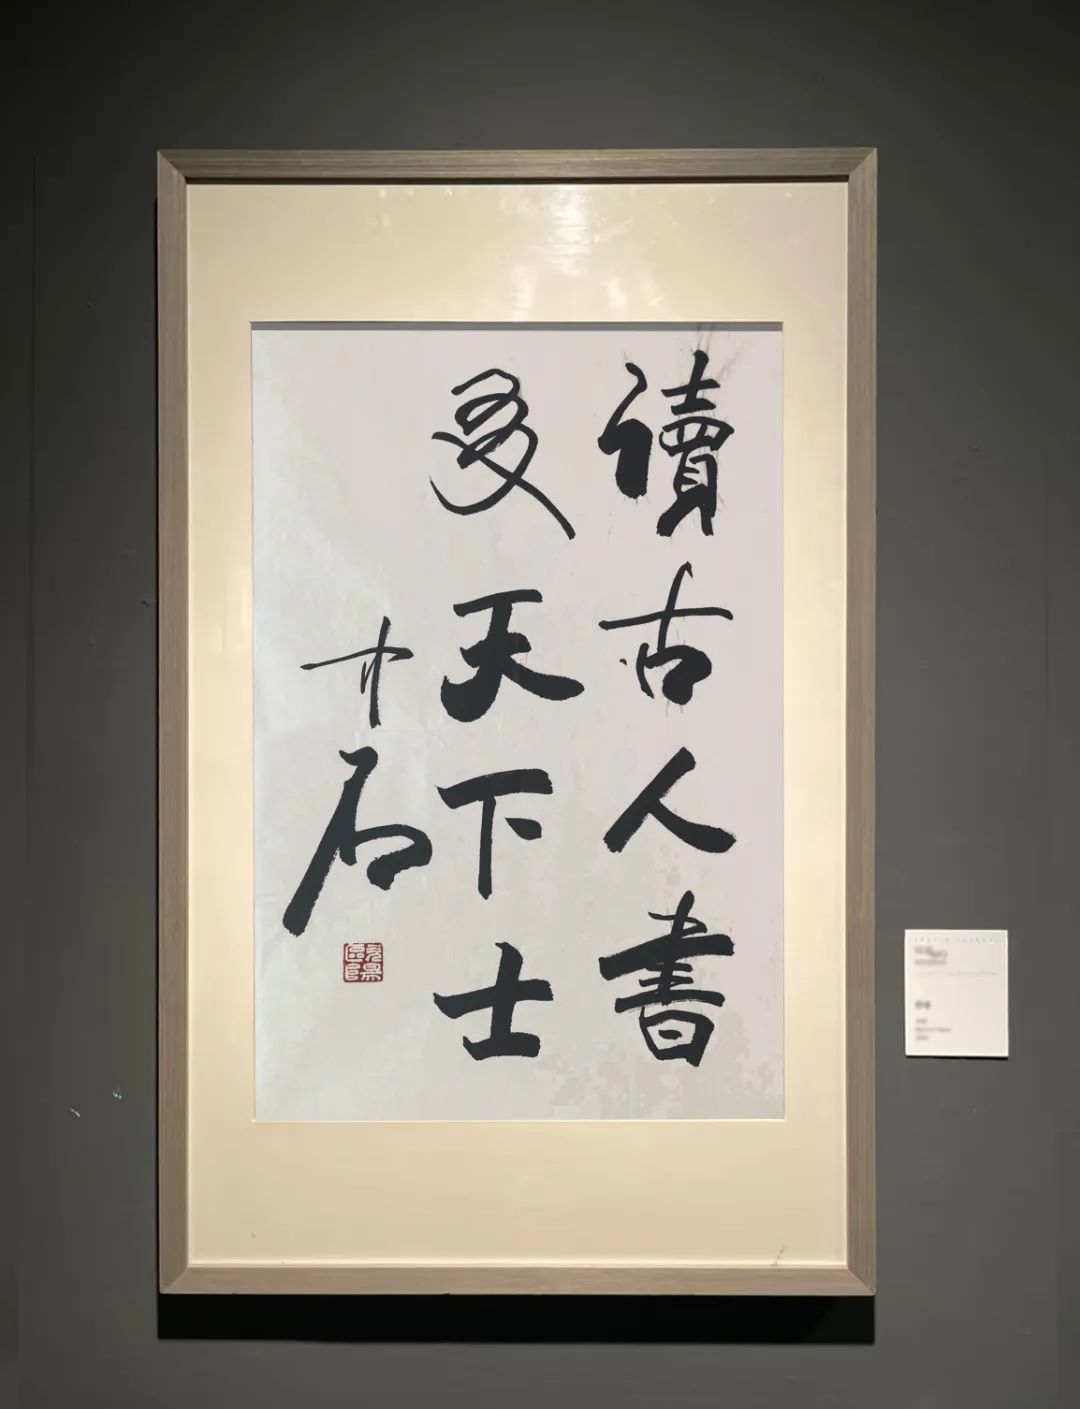 讀古人書
友天下士
中石